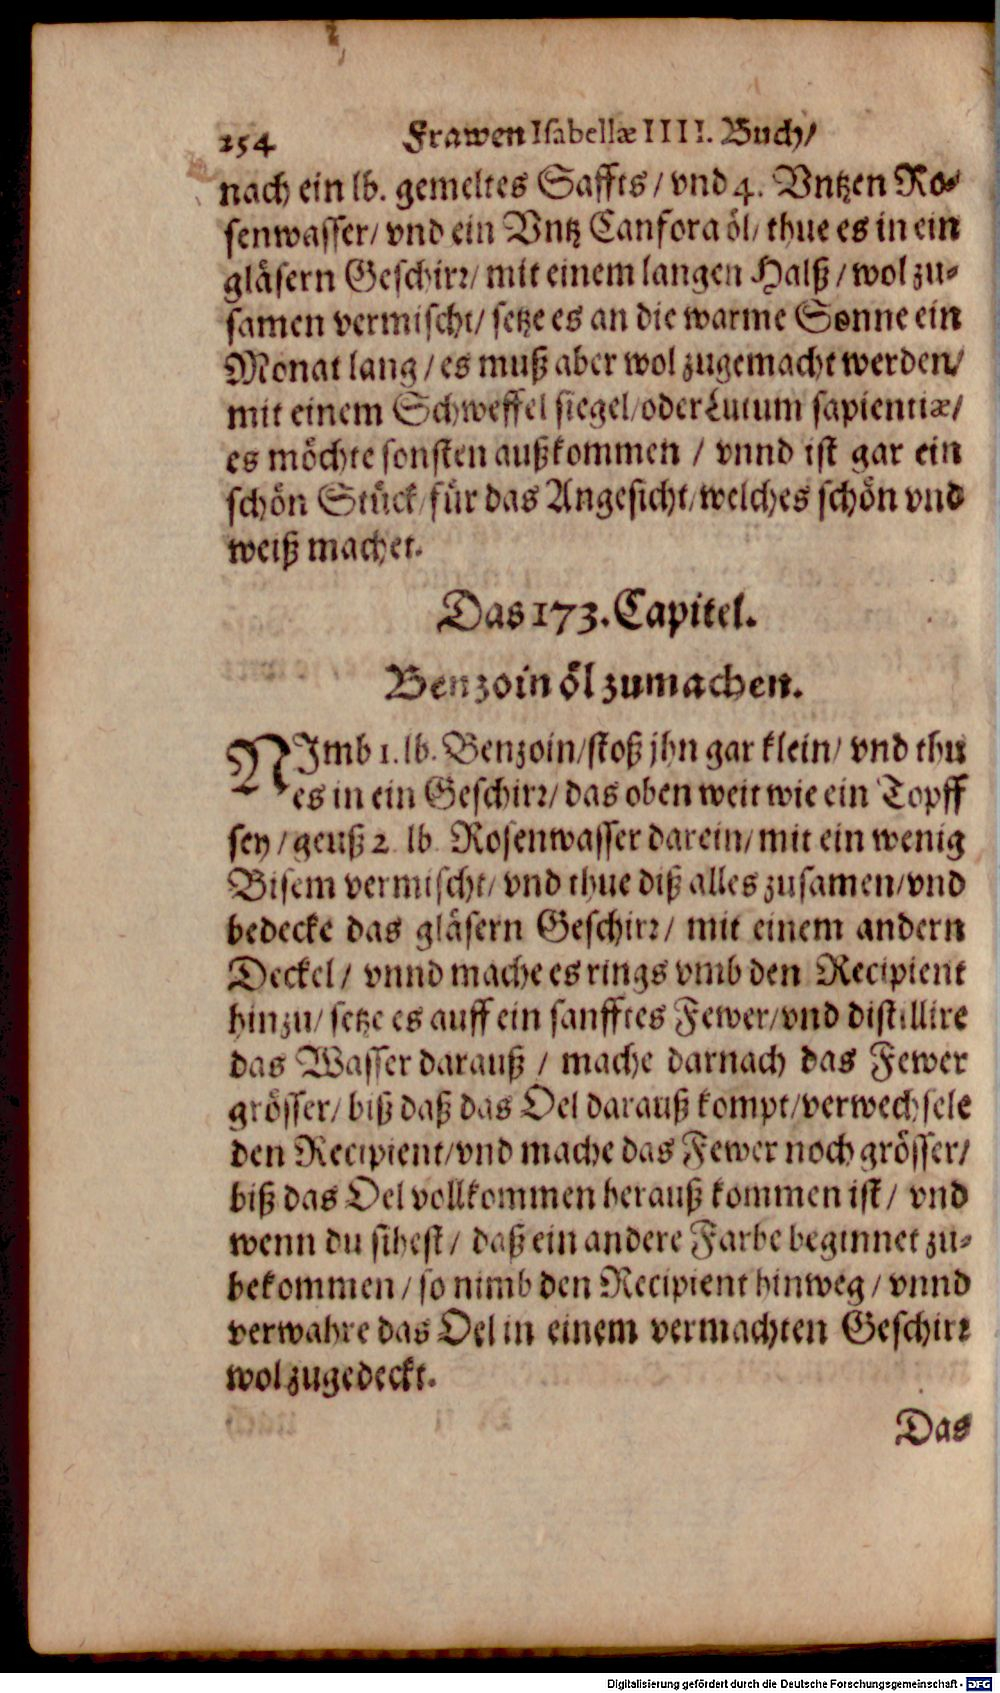 254 Frawen Isabellæ IIII. Buch/
nach ein lb. gemeltes Saffts / vnd 4. Vntzen Ro-
senwasser/ vnd ein Vntz Canfora öl/ thue es in ein
gläsern Geschirr/ mit einem langen Halß / wol zu-
samen vermischt/ setze es an die warme Sonne ein
Monat lang / es muß aber wol zugemacht werden/
mit einem Schweffel siegel/oder Lutum sapientiæ/
es möchte sonsten außkommen / vnnd ist gar ein
schön Stück/für das Angesicht/welches schön vnd
weiß machet.
Das 173. Capitel.
Benzoin öl zumachen.
NJmb 1. lb. Benzoin/stoß jhn gar klein/ vnd thu
es in ein Geschirr/ das oben weit wie ein Topff
sey / geuß 2 lb Rosenwasser darein/ mit ein wenig
Bisem vermischt/ vnd thue diß alles zusamen/vnd
bedecke das gläsern Geschirr/ mit einem andern
Deckel/ vnnd mache es rings vmb den Recipient
hinzu/ setze es auff ein sanfftes Fewer/vnd distillire
das Wasser darauß / mache darnach das Fewer
grösser/ biß daß das Oel darauß kompt/verwechsele
den Recipient/vnd mache das Fewer noch grösser/
biß das Oel vollkommen herauß kommen ist / vnd
wenn du sihest / daß ein andere Farbe beginnet zu-
bekommen / so nimb den Recipient hinweg / vnnd
verwahre das Oel in einem vermachten Geschirr
wol zugedeckt.
Das
Digitalisierung gefördert durch die Deutsche Forschungsgemeinschaft - DFG